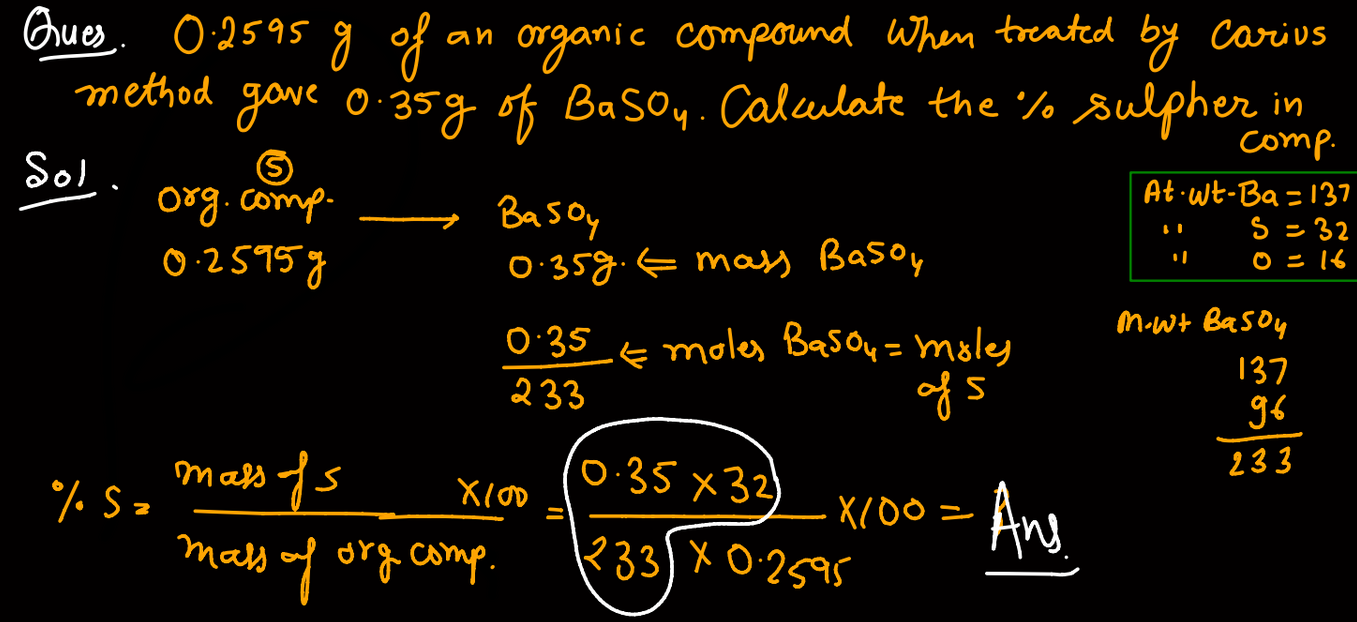 Ques. 0.2595 g of an organic compound when treated by carius
method gave 0.35g of BaSO4. Calculate the % sulpher in
comp.
Sol.
S
org. comp. → BaSO4
0.2595g
0.35g. ⇐ mass BaSO4
At.wt-Ba = 137
" S = 32
" O = 16
0.35
233
⇐ moles BaSO4 = moles
of S
M.wt BaSO4
137
96
233
% S = mass of S
mass of org comp.
x100 = 0.35 x 32
233 x 0.2595
x100 = Ans.